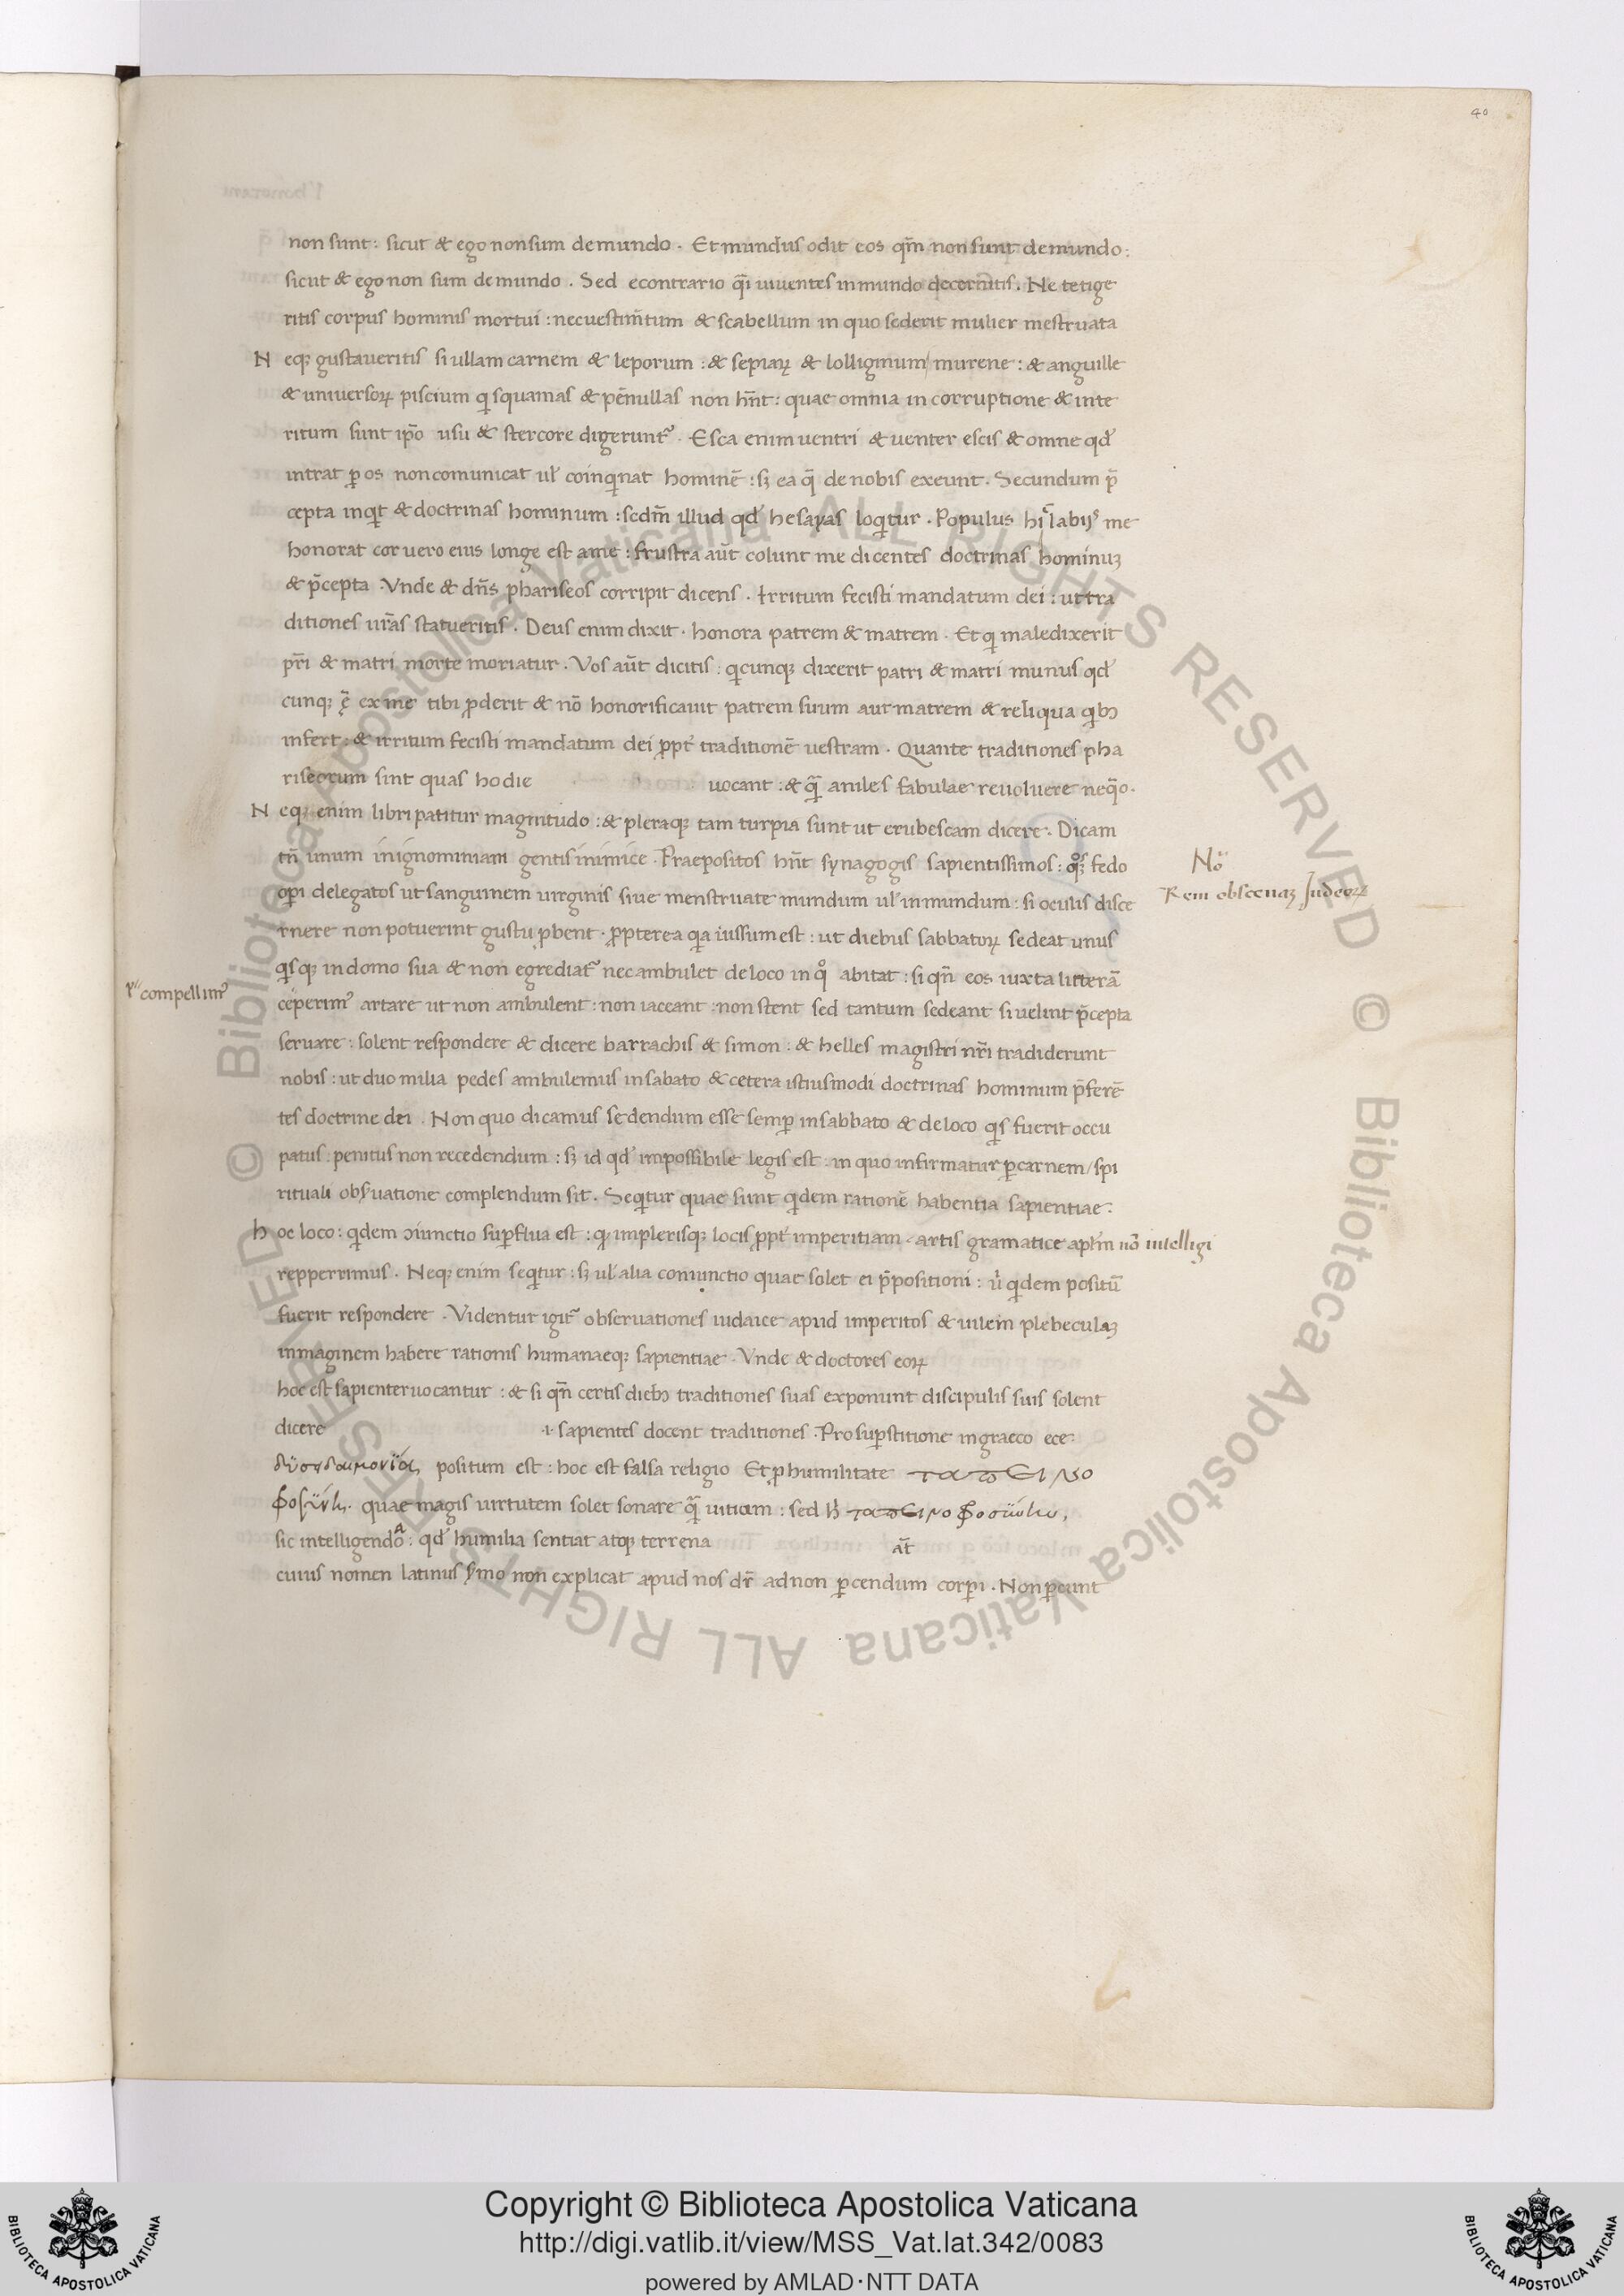 40
non sunt : sicut & ego non sum de mundo . Et mundus odit eos qm̄ non sunt de mundo :
sicut & ego non sum de mundo . Sed econtrario q̄i viventes in mundo decernitis . Ne tetige
ritis corpus hominis mortui : nec vestim̄tum & scabellum in quo sederit mulier mestruata
N eqꝫ gustaveritis si ullam carnem & leporum : & sepiaꝝ & lolliginum / murene : & anguille
& universoꝝ piscium q squamas & pēnullas non hn̄t : quae omnia in corruptione & inte
ritum sunt ip̄o usu & stercore digerunt᷑ . Esca enim ventri & venter escis & omne qd̓
intrat ꝑ os non comunicat ul̓ coinqinat hominē : sꝫ ea q̄ de nobis exeunt . Secundum p̄
cepta inqit & doctrinas hominum : scdm̄ illud qd̓ hesayas loqitur . Populus hic labijs me
honorat cor vero eius longe est a me : frustra aūt colunt me dicentes doctrinas hominuꝫ
& p̄cepta . Vnde & dn̄s phariseos corripit dicens . Irritum fecisti mandatum dei : ut tra
ditiones ur̄as statueritis . Deus enim dixit . honora patrem & matrem . Et qi maledixerit
pr̄i & matri morte moriatur . Vos aūt dicitis : qicunqꝫ dixerit patri & matri munus qd̓
cunqꝫ ē ex me tibi ꝓderit & nō honorificavit patrem suum aut matrem & reliqua qibꝫ
infert : & irritum fecisti mandatum dei ꝓpt̓ traditionē vestram . Quante traditiones pha
riseorum sint quas hodie vocant : & q̄ aniles fabulae revolvere neq̄o .
N eqꝫ enim libri patitur magnitudo : & pleraqꝫ tam turpia sunt ut erubescam dicere . Dicam
tn̄ unum in ignominiam gentis inimice . Praepositos hn̄t synagogis sapientissimos : qoſꝫ fedo
oꝑi delegatos ut sanguinem virginis sive menstruate mundum ul̓ inmundum : si oculis disce
rnere non potuerint gustu ꝓbent . ꝓpterea qia iussum est : ut diebus sabbatoꝝ sedeat unus
qisqꝫ in domo sua & non egrediat᷑ nec ambulet de loco in qo abitat : si qn̄ eos iuxta litterā
ceperimꝰ artare ut non ambulent : non iaceant : non stent sed tantum sedeant si velint p̄cepta
servare : solent respondere & dicere barrachis & simon : & helles magistri nr̄i tradiderunt
nobis : ut duo milia pedes ambulemus in sabato & cetera istiusmodi doctrinas hominum p̄ferē
tes doctrine dei . Non quo dicamus sedendum esse semꝑ in sabbato & de loco qis fuerit occu
patus : penitus non recedendum : sꝫ id qd̓ impossibile legis est : in quo infirmatur ꝑ carnem / spi
rituali obs̓vatione complendum sit . Seqitur quae sunt qidem rationē habentia sapientiae .
h oc loco : qidem ɔiunctio suꝑflua est : q̓ in plerisqꝫ locis ꝓpt̓ imperitiam artis gramatice apl̄m nō intelligi
repperimus . Neqꝫ enim seqitur : sꝫ ul̓ alia coniunctio quae solet ei p̄positioni : ū qidem positū
fuerit respondere . Videntur igit᷑ observationes iudaice apud imperitos & vilem plebeculaꝫ
inmaginem habere rationis humanaeqꝫ sapientiae . Vnde & doctores eoꝝ
hoc est sapienter vocantur : & si qn̄ certis diebꝫ traditiones suas exponunt discipulis suis solent
dicere .i. sapientes docent traditiones . Pro suꝑstitione in graeco ece
positum est : hoc est falsa religio Et ꝓ humilitate ταπεινο
quae magis virtutem solet sonare q̄ vitium : sed h̓
sic intelligendō : qd̓ humilia sentiat atqꝫ terrena at̄
cuius nomen latinus s̓mo non explicat apud nos dr̄ ad non ꝑcendum corꝑi . Non ꝑcunt
compellimꝰ
No
Rem obscenaꝫ Judeoꝝ
© Biblioteca Apostolica Vaticana ALL RIGHTS RESERVED © Biblioteca Apostolica Vaticana ALL RIGHTS RESERVED
BIBLIOTECA APOSTOLICA VATICANA
Copyright © Biblioteca Apostolica Vaticana
http://digi.vatlib.it/view/MSS_Vat.lat.342/0083
powered by AMLAD·NTT DATA
BIBLIOTECA APOSTOLICA VATICANA